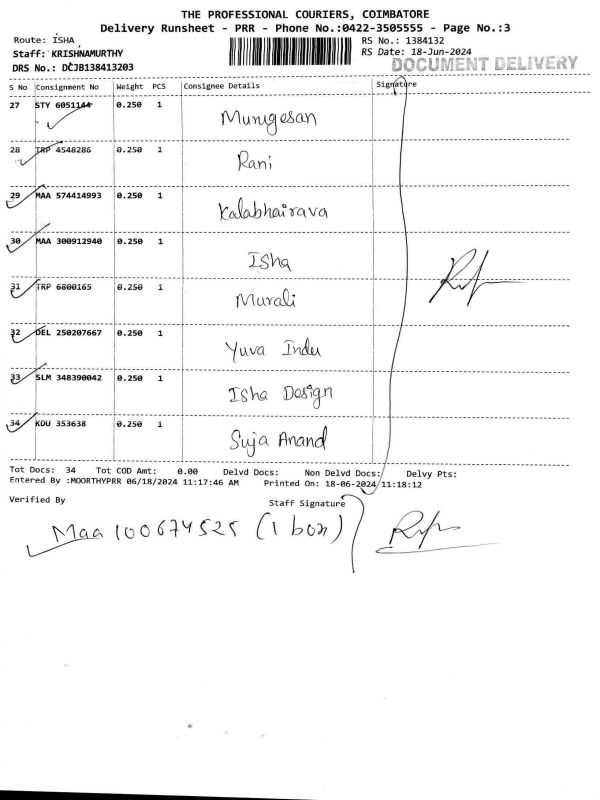 THE PROFESSIONAL COURIERS, COIMBATORE
Delivery Runsheet - PRR - Phone No.:0422-3505555 - Page No.:3
Route: ISHA
RS No.: 1384132
Staff: KRISHNAMURTHY
RS Date: 18-Jun-2024
DRS No.: DCJB138413203
DOCUMENT DELIVERY
S No Consignment No Weight PCS Consignee Details Signature
27 STY 6051144 0.250 1 Murugesan
28 TRP 4548286 0.250 1 Rani
29 MAA 574414993 0.250 1 Kalabhairava
30 MAA 300912940 0.250 1 Isha
31 TRP 6800165 0.250 1 Murali
32 DEL 250207667 0.250 1 Yuva Indu
33 SLM 348390042 0.250 1 Isha Design
34 KDU 353638 0.250 1 Suja Anand
Tot Docs: 34 Tot COD Amt: 0.00 Delvd Docs: Non Delvd Docs: Delvy Pts:
Entered By :MOORTHYPRR 06/18/2024 11:17:46 AM Printed On: 18-06-2024 11:18:12
Verified By Staff Signature
Maa 100674525 (1 box)